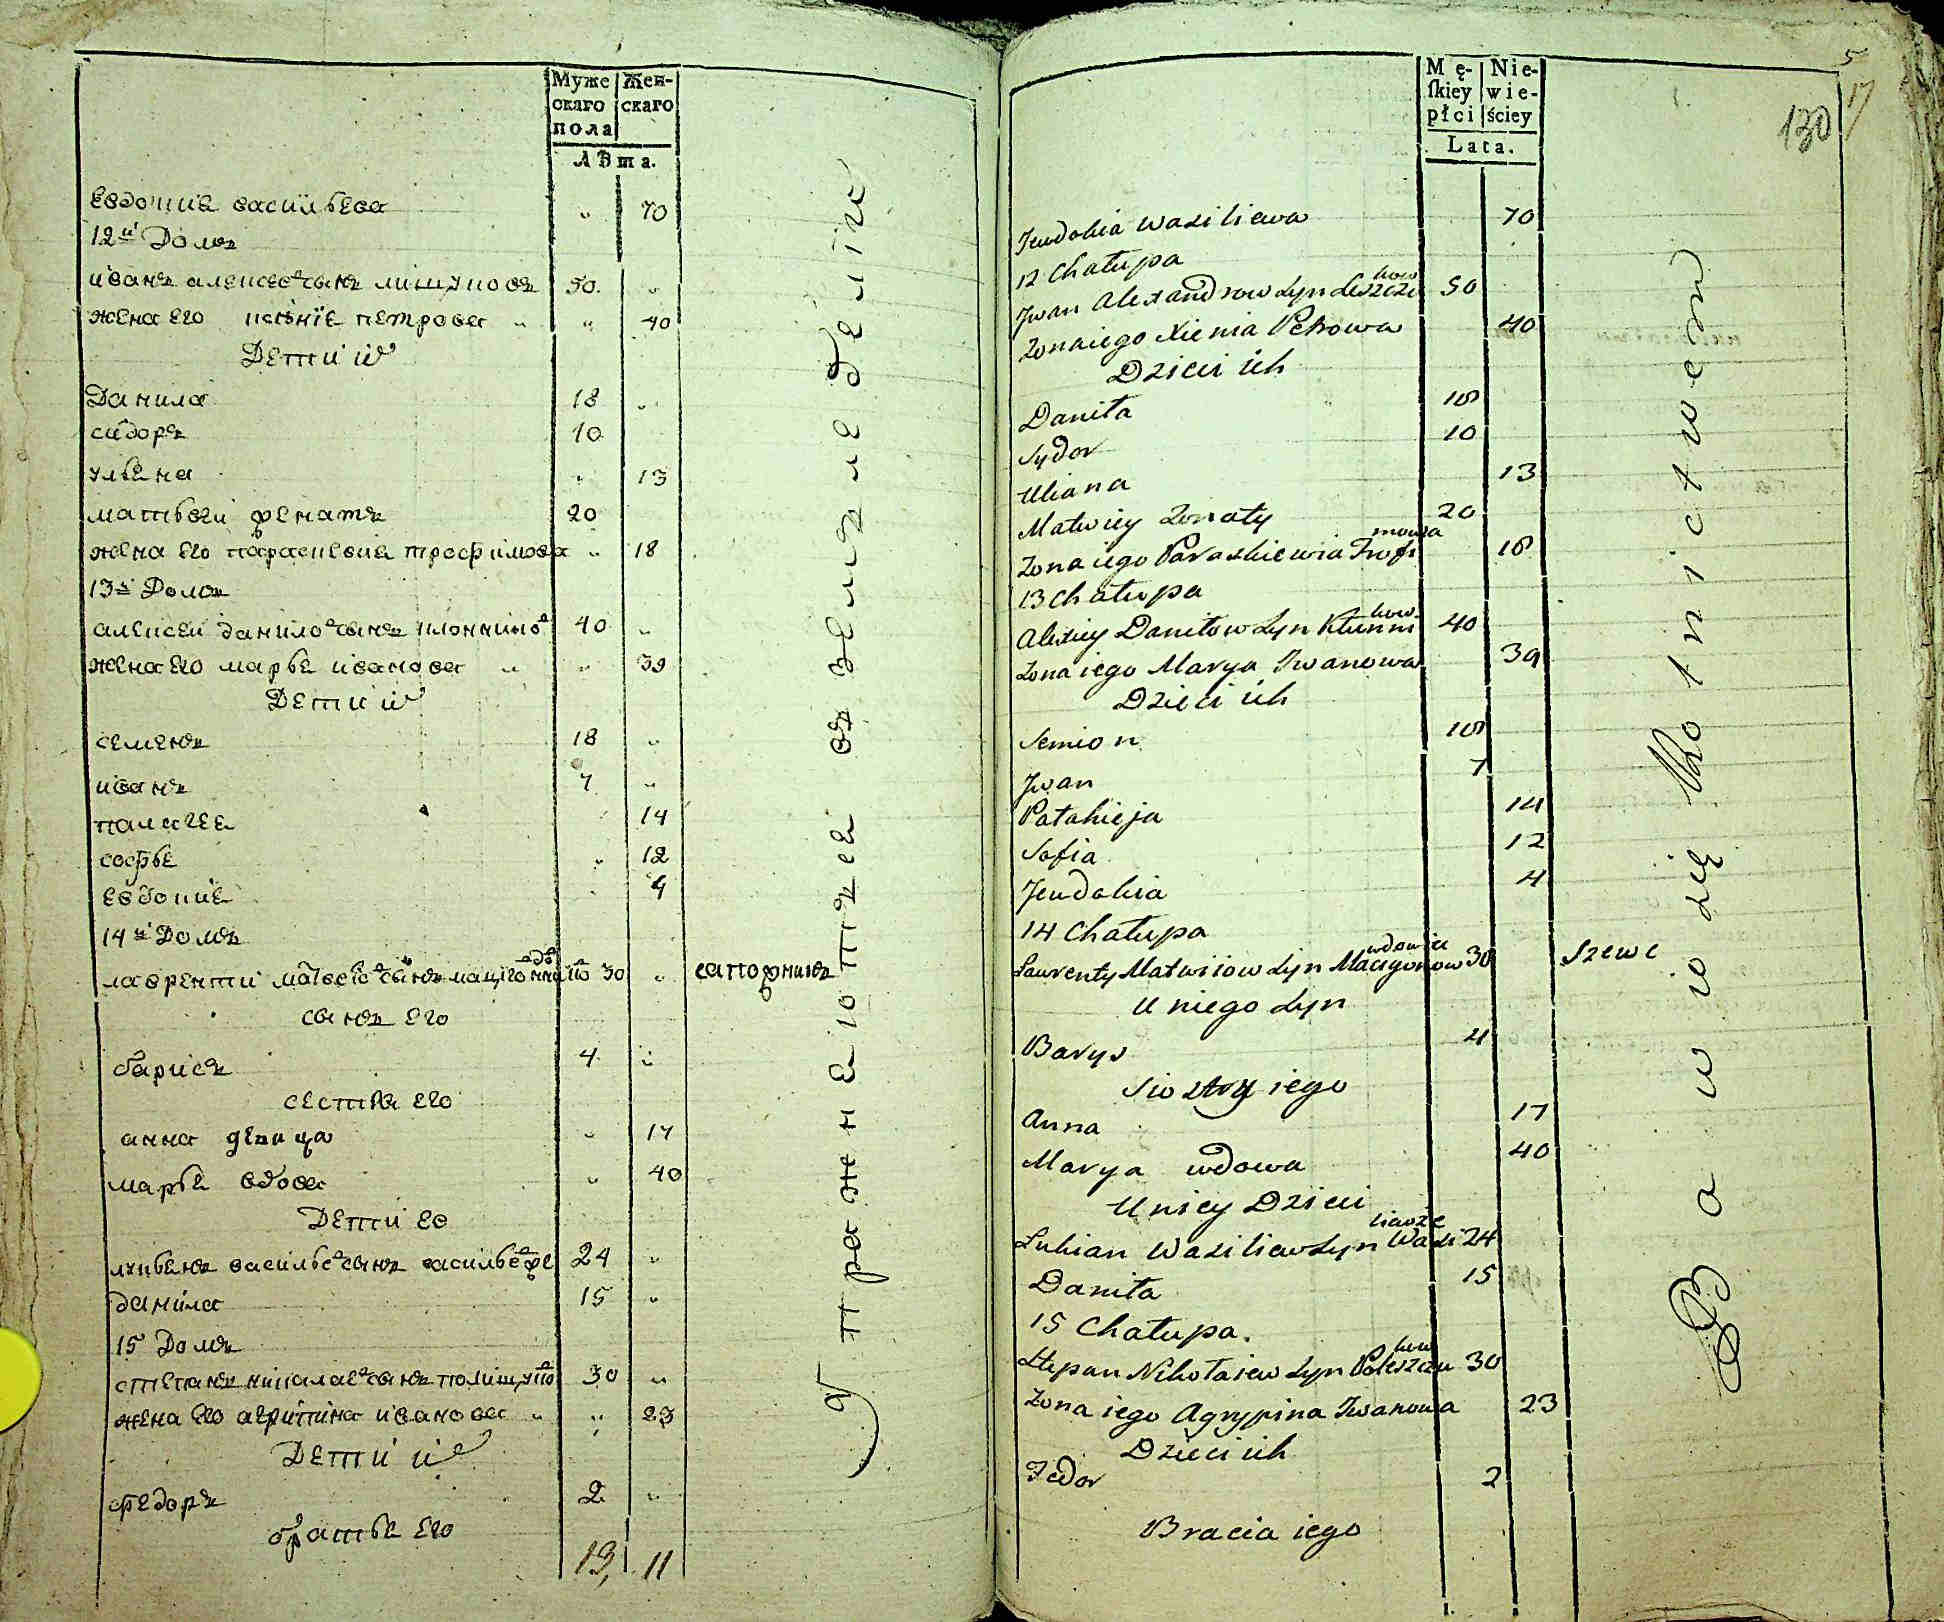 Муже Жен-
скаго скаго
пола
Лѣта.
Евдокиѣ васильева " 70
12й Домъ
иванъ алексеевъ сынъ лишчуновъ 50 "
жена его ксѣния петрова " 40
Дети их
Данила 18 "
сидоръ 10
ульѣна " 13
матвеи женатъ 20
жена его параскевиѣ трофимова " 18
13й Домъ
алексеи данилов сынъ клюнников 40 "
жена его марьѣ иванова " " 39
Дети их
семенъ 18 "
иванъ 7 "
палагеѣ 14
софьѣ " 12
евдокиѣ " 4
14й Домъ
лаврентии матвеев сынъ 30 " сапожникъ
сынъ его
барисъ 4 "
сестра его
анна девица " 17
марьѣ вдова " 40
Дети ее
лукьѣнъ васильев сынъ 24 "
данила 15 "
15 Домъ
степанъ николаев сынъ полишчуков 30 "
жена его агрипина иванова " " 23
Дети их
федоръ 2 "
братьѣ его
13, 11
упражнѣютцѣ въ земледелие
5
17
130
Mę- Nie-
ſkiey wie-
płci ściey
Lata.
Jeudokia Wasiliewa 70
12 Chałupa
Jwan Alexandrow Syn Leszczukow 50
Zona iego Xienia Petrowa 40
Dzieci ich
Daniła 18
Sydor 10
Uliana 13
Matwiey Zonaty 20
Zona iego Paraskiewia Trofimowa 18
13 Chałupa
Alexiey Daniłow Syn Klunnikow 40
Zona iego Marya Jwanowa 39
Dzieci ich
Semion 18
Jwan 7
Pałahieja 14
Sofia 12
Jeudokia 4
14 Chałupa
Laurenty Matwiiow Syn Macygonow wdowiec 30 Szewc
U niego Syn
Barys 4
Siostry iego
Anna 17
Marya wdowa 40
U niey Dzieci
Lukian Wasiliew Syn 24
Daniła 15
15 Chałupa.
Stepan Nikołaiew Syn Poleszczukow 30
Zona iego Agrypina Jwanowa 23
Dzieci ich
Fedor 2
Bracia iego
Bawio się Rolnictwem